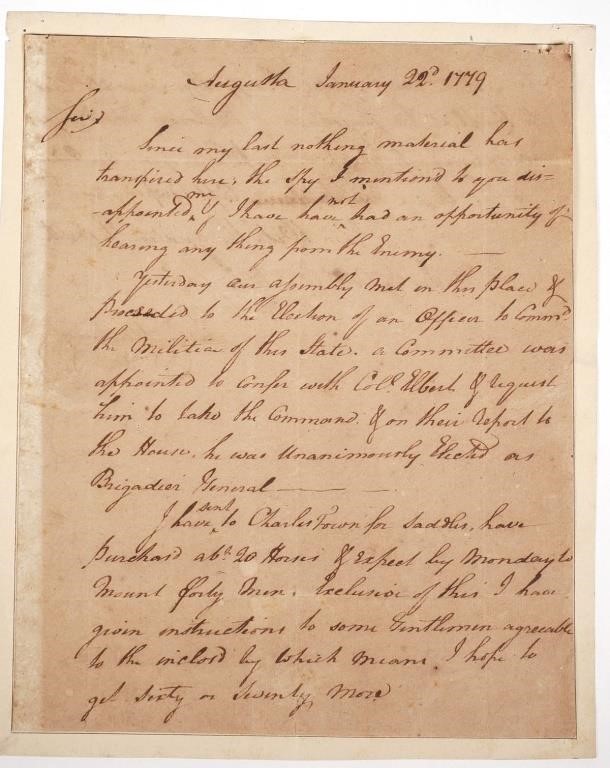 Augusta January 22d. 1779
Sir,
Since my last nothing material has
transpired here, the spy I mentioned to you dis=
-appointed me, & I have have not had an opportunity of
hearing any thing from the Enemy. —
Yesterday our assembly met in this place &
Proceeded to the Election of an Officer to Commd.
the Militia of this State. a Committee was
appointed to confer with Coll. Elbert & request
him to take the Command & on their report to
the House, he was Unanimously Elected as
Brigadier General — —
I have sent to Charles Town for Saddles, have
Purchasd abt. 20 Horses & Expect by Monday to
Mount forty Men. Exclusive of this I have
given instructions to some Gentlemen agreeable
to the inclosd by which means I hope to
get sixty or Seventy More